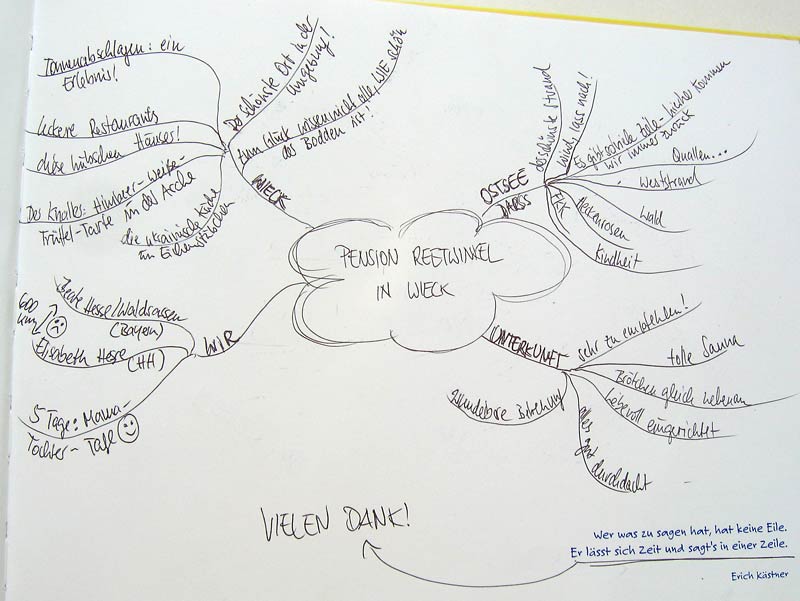 Tonnenabschlagen: ein
Erlebnis!
leckere Restaurants
diese hübschen Häuser!
Der Knaller: Himbeer-Weiße-
Trüffel-Tarte in der Arche
die ukrainische Küche
im
Der schönste Ort in der
Umgebung!
Zum Glück wissen nicht alle, WIE schön
der Bodden ist!
WIECK
OSTSEE
DARSS
der schönste Strand
Wind, lass nach!
Es gibt so viele Ziele - hierher kommen
wir immer zurück
Quallen...
Weststrand
Wald
Heckenrosen
Kindheit
FKK
PENSION REETWINKEL
IN WIECK
WIR
Beate Hesse/Waldsassen
(Bayern)
600
km
Elisabeth Hesse (HH)
5 Tage: Mama-
Tochter-Tage
UNTERKUNFT
sehr zu empfehlen!
tolle Sauna
Brötchen gleich nebenan
liebevoll eingerichtet
alles gut
durchdacht
wunderbare Betreuung
VIELEN DANK!
Wer was zu sagen hat, hat keine Eile.
Er lässt sich Zeit und sagt's in einer Zeile.
Erich Kästner